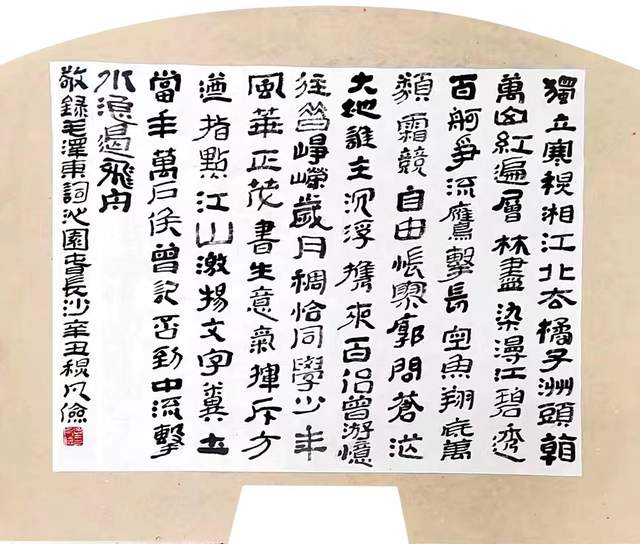 獨立寒秋湘江北去橘子洲頭看
萬山紅遍層林盡染漫江碧透
百舸爭流鷹擊長空魚翔底萬
類霜競自由悵寥郭問蒼茫
大地誰主沉浮攜來百侶曾游憶
往昔崢嶸歲月稠恰同學少年
風華正茂書生意氣揮斥方
遒指點江山激揚文字糞土
當年萬戶侯曾記否到中流擊
水浪遏飛舟
敬錄毛澤東詞沁園春長沙辛丑秋凡儉